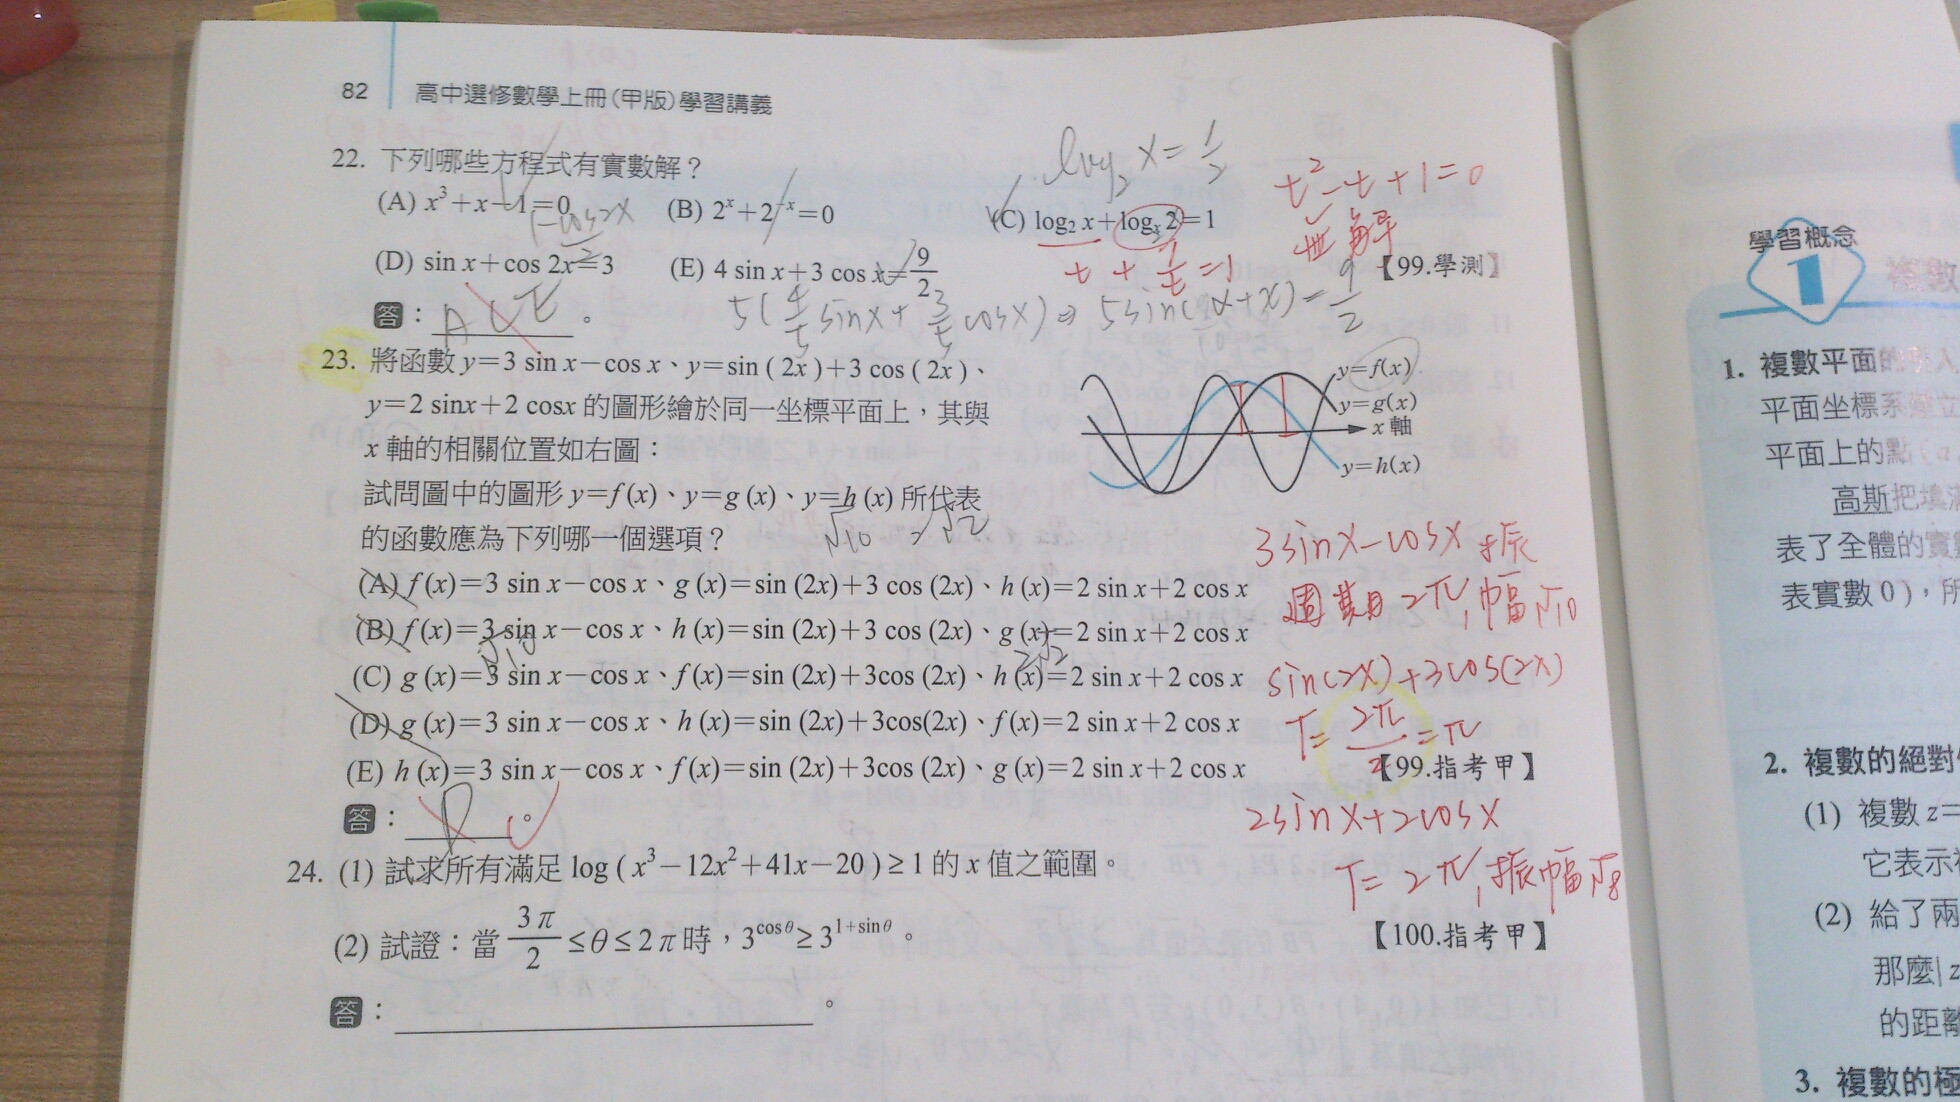 82 高中選修數學上冊(甲版)學習講義
22. 下列哪些方程式有實數解？
log₂ x = 1/2
t² - t + 1 = 0
無解
(A) x³+x−1=0 (B) 2ˣ+2⁻ˣ=0 (C) log₂ x+logₓ 2=1
1-cos2x / 2
t + 1/t = 1
(D) sin x+cos 2x=3 (E) 4 sin x+3 cos x=9/2 【99.學測】
答：A C E。
5(4/5 sinx + 3/5 cosx) ⇒ 5sin(α+x) = 9/2
23. 將函數 y=3 sin x−cos x、y=sin ( 2x )+3 cos ( 2x )、
y=2 sinx+2 cosx 的圖形繪於同一坐標平面上，其與
x 軸的相關位置如右圖：
試問圖中的圖形 y=f(x)、y=g (x)、y=h (x) 所代表
的函數應為下列哪一個選項？
y=f(x)
y=g(x)
x 軸
y=h(x)
√10
(A) f(x)=3 sin x−cos x、g (x)=sin (2x)+3 cos (2x)、h (x)=2 sin x+2 cos x
(B) f(x)=3 sin x−cos x、h (x)=sin (2x)+3 cos (2x)、g (x)=2 sin x+2 cos x
√10 2√2
(C) g (x)=3 sin x−cos x、f(x)=sin (2x)+3cos (2x)、h (x)=2 sin x+2 cos x
(D) g (x)=3 sin x−cos x、h (x)=sin (2x)+3cos(2x)、f(x)=2 sin x+2 cos x
(E) h (x)=3 sin x−cos x、f(x)=sin (2x)+3cos (2x)、g (x)=2 sin x+2 cos x
【99.指考甲】
答：。
3sinx-cosx 振
週期2π, 幅√10
sin(2x)+3cos(2x)
T= 2π/2 =π
2sinx+2cosx
T= 2π, 振幅√8
24. (1) 試求所有滿足 log ( x³−12x²+41x−20 ) ≥ 1 的 x 值之範圍。
(2) 試證：當 3π/2 ≤θ≤2π 時，3^cosθ ≥ 3^1+sinθ。 【100.指考甲】
答：。
學習概念
1
1. 複數平面的
平面坐標系
平面上的點
高斯把填
表了全體的實
表實數 0 )，所
2. 複數的絕對
(1) 複數 z=
它表示
(2) 給了兩
那麼| z
的距離
3. 複數的極